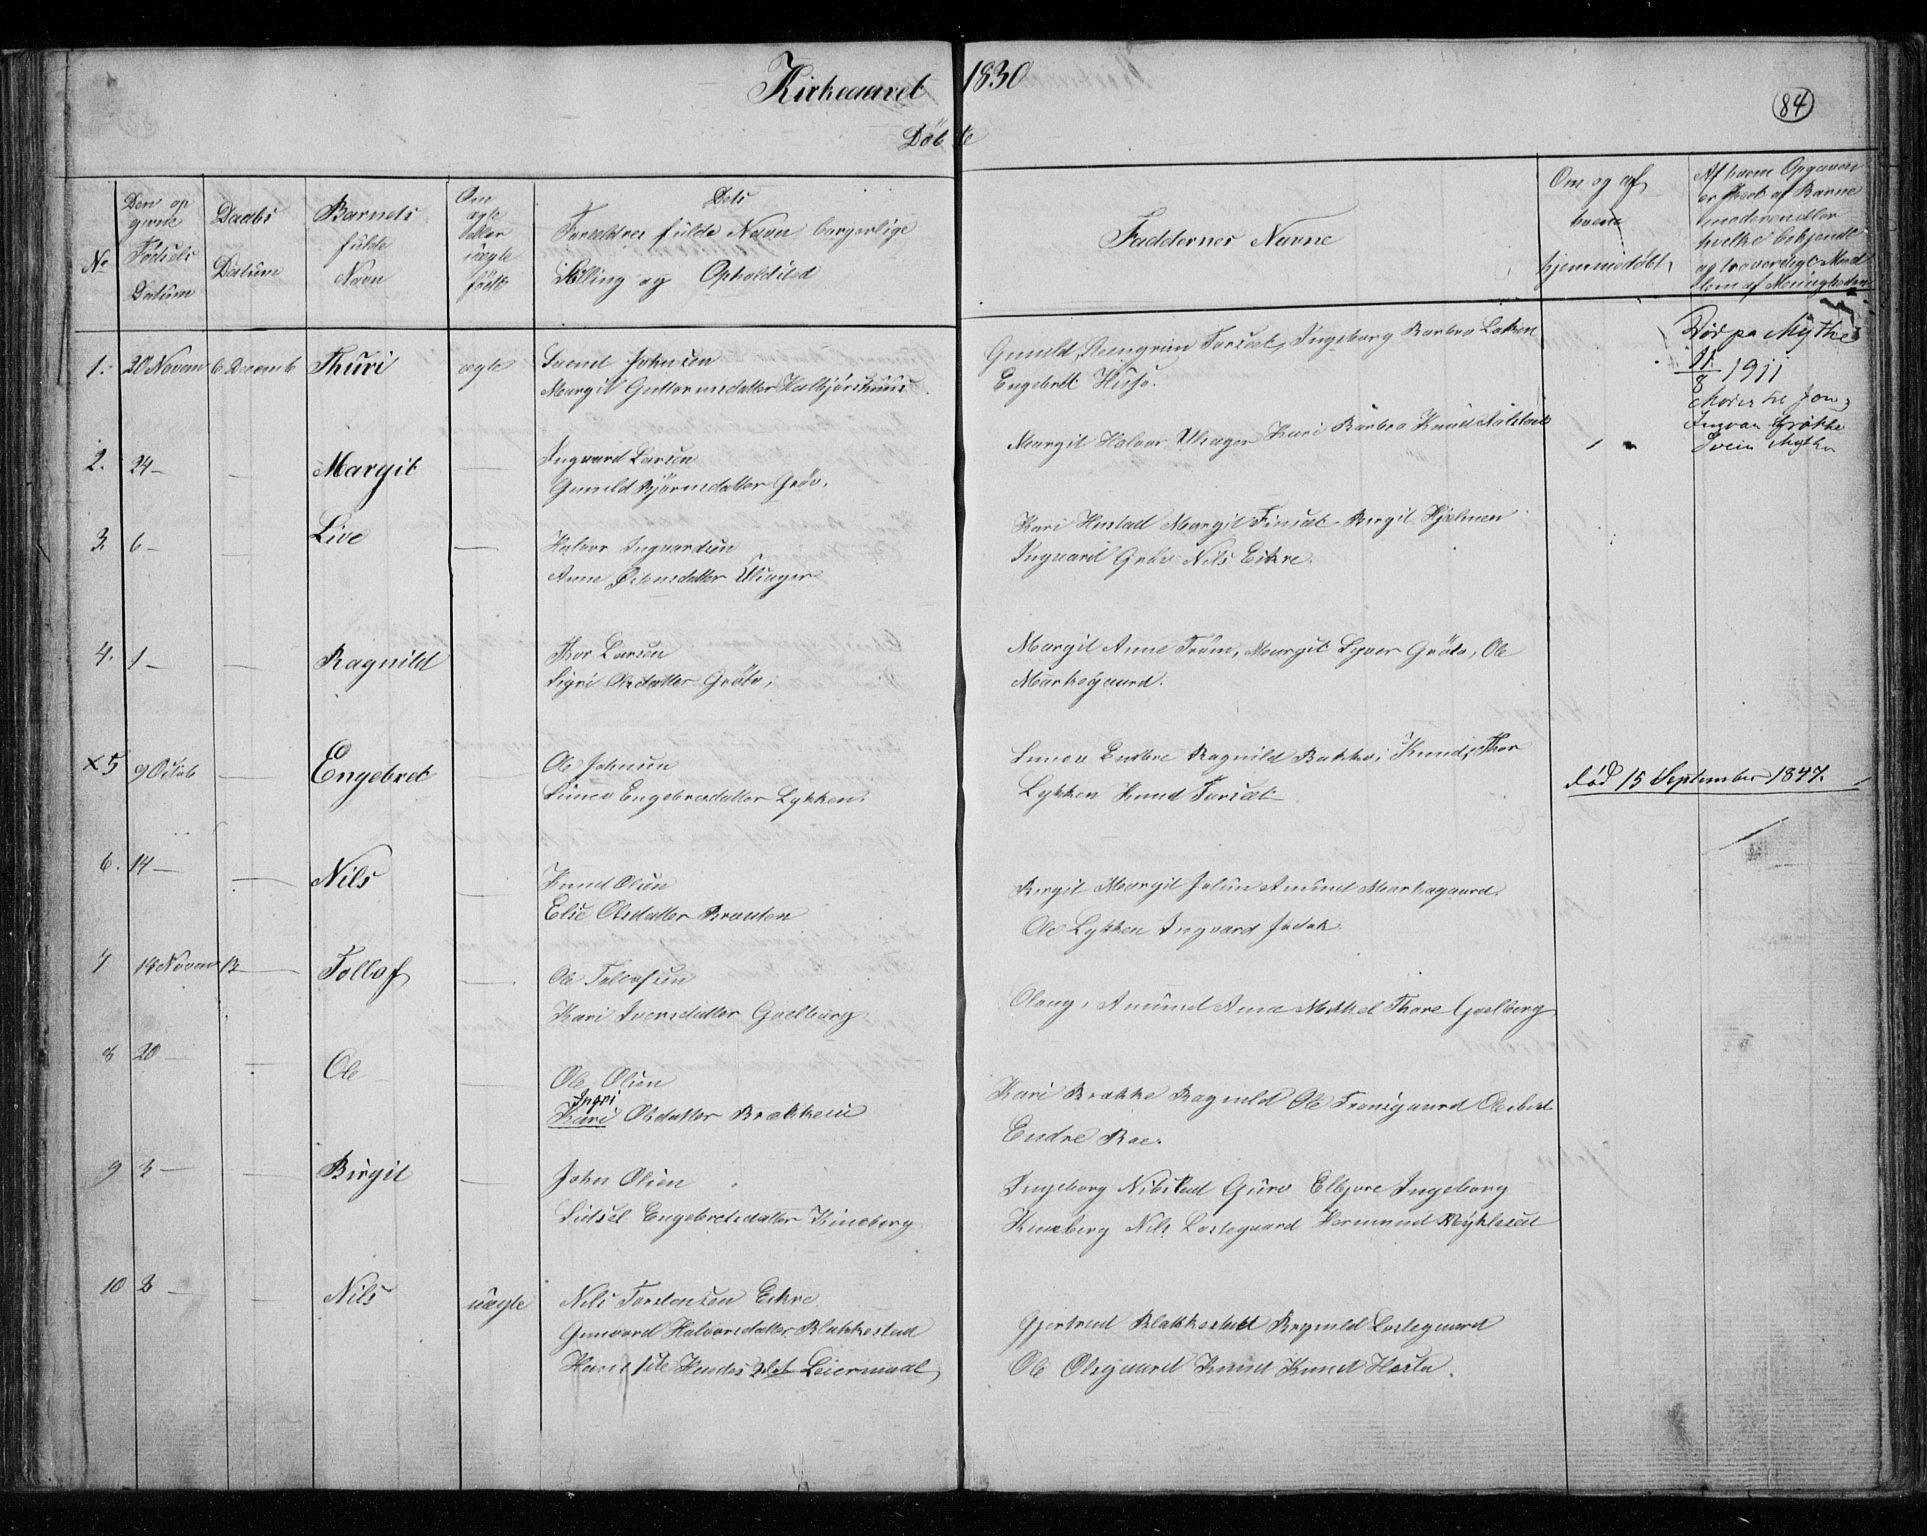 Kirkeaaret 1830
84
Døbte
No
Den op
givne
Fødsels
Datum
Daabs
Datum
Barnets
fulde
Navn
Om
ægte
eller
uægte
født
Dets
Forældres fulde Navn borgerlige
Stilling og Opholdsted
Faddernes Navne
Om og af
hvem
hjemmedøbt
Af hvem Opgaven
er skeet af Barne
moderen eller
hvilke bekjendt
og troværdigt Med
lem af Menigheden
1. 20 Novem 6 Decemb Thuri ægte Svend Johnsen
Margit Guttormsdatter
Gunild Steengrim Torsæt, Ingeborg Barbro Løken
Engebrit Huso.
Død pa Mythe
11/8 1911
Moder til Jon,
Ingvar Grøthe
Svein Mythe
2. 24 Margit Inguard Larsen
Gunild Bjørnsdatter Grøv.
Margit Halvor Ulsager Kari Barbro Knud
3. 6 Live Halvor Inguardsen
Anne Østensdatter Ulsager
Kari Hustad Margit Finsæt Birgit Hjelmen
Inguard Grøv Nils Eikre.
4. 1 Ragnild Thor Larsen
Sigri Olsdatter Grøto,
Margit Anne Trøim, Margit Syver Grøto, Ole
Markegaard.
x5 9 Octob Engebret Ole Johnsen
Engebretsdatter Lykken.
Endre Ragnild Bakke, Knud, Thor
Lykken Knud Torsæt
død 15 September 1847.
6. 14 Nils Knud Olsen
Elie Olsdatter Brauten
Birgit Margit Amund Markegaard.
Ole Lykken Inguard
7 18 Novem 13 Tollof Ole Tollofsen
Kari Iversdatter Guelberg
Olaug, Amund Anne Mikkel Thore Guelberg
8 20 Ole Ole Olsen
Ingri
Kari Olsdatter Brækken
Kari Brække Ragnild Ole Tronsgaard Ole
Endre Roe.
9 3 Birgit John Olsen
Sidsel Engebretsdatter Kinneberg
Ingeborg Nibstad Guro Elbjore Ingeborg
Kinneberg Nils Lostegaard Hermund Myklesæt
10 8 Nils uægte Nils Torstensen Eikre
Gunvord Halvorsdatter Blakkestad
2det Leiermaal
Gjertrud Blakkestad Ragnild Lostegaard
Ole Olsgaard Knud Knud